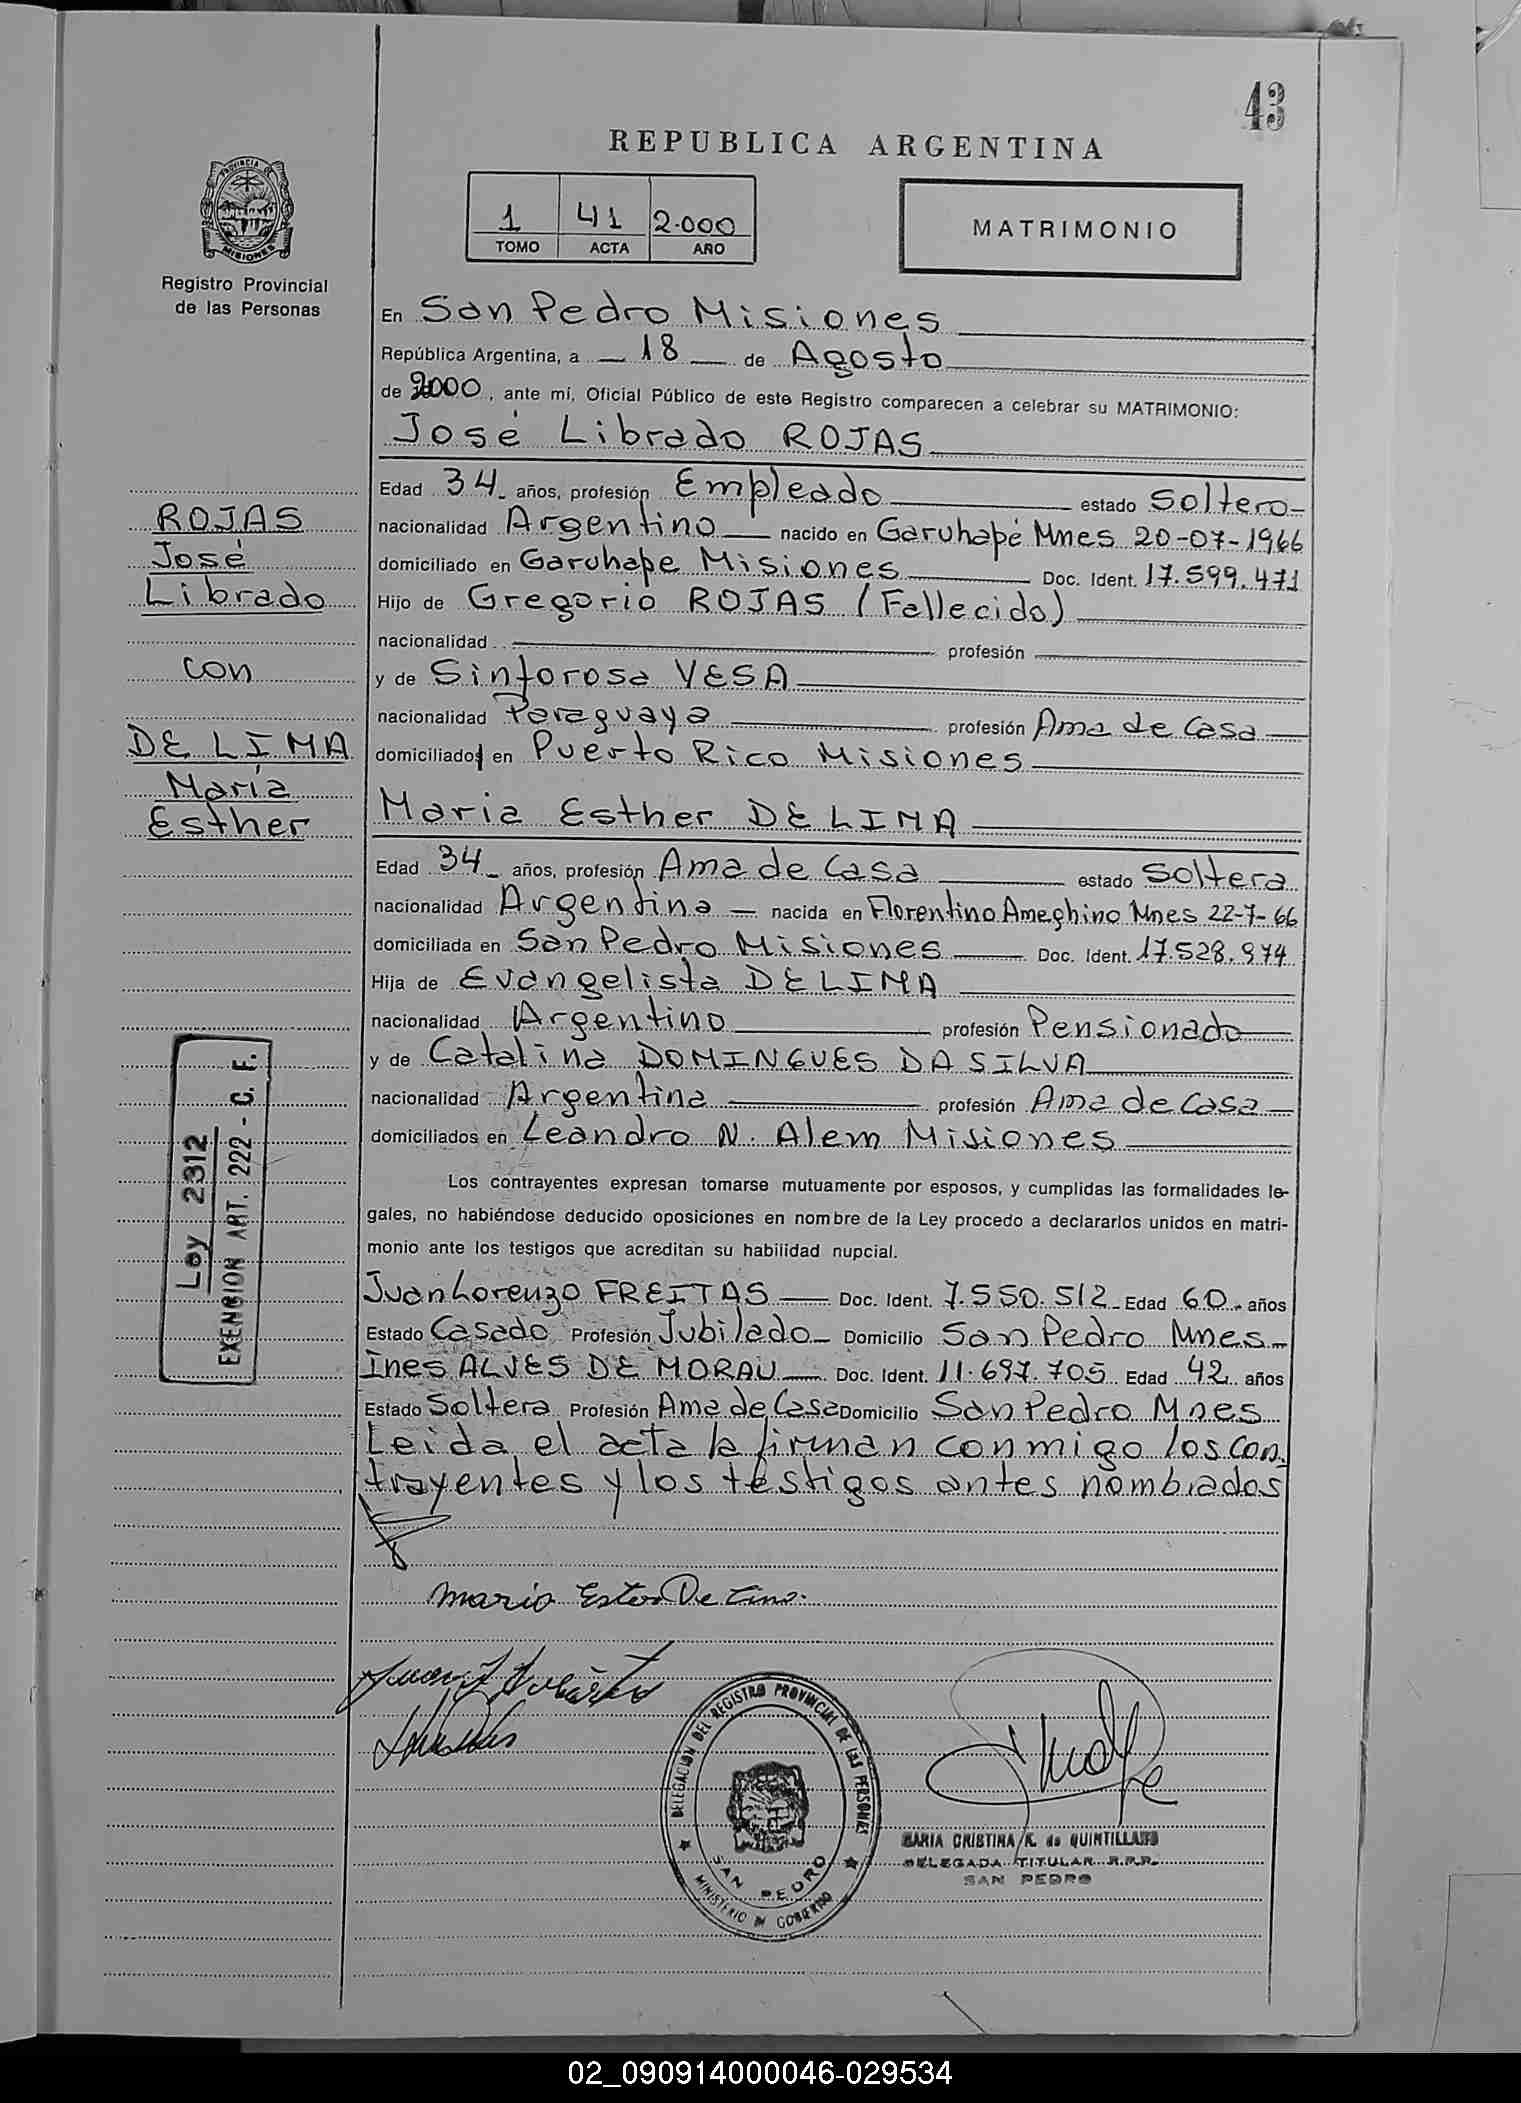 43
REPUBLICA ARGENTINA
PROVINCIA DE
MISIONES
Registro Provincial
de las Personas
1 41 2.000
TOMO ACTA AÑO
MATRIMONIO
En San Pedro Misiones
República Argentina, a 18 de Agosto
de 2000, ante mí, Oficial Público de este Registro comparecen a celebrar su MATRIMONIO:
José Librado ROJAS
Edad 34 años, profesión Empleado estado Soltero
nacionalidad Argentino nacido en Garuhapé Mnes 20-07-1966
domiciliado en Garuhape Misiones Doc. Ident. 17.599.471
Hijo de Gregorio ROJAS (Fallecido)
nacionalidad profesión
y de Sinforosa VESA
nacionalidad Paraguaya profesión Ama de Casa
domiciliados en Puerto Rico Misiones
Maria Esther DE LIMA
Edad 34 años, profesión Ama de Casa estado Soltera
nacionalidad Argentina nacida en Florentino Ameghino Mnes 22-7-66
domiciliada en San Pedro Misiones Doc. Ident. 17.528.974
Hija de Evangelista DE LIMA
nacionalidad Argentino profesión Pensionado
y de Catalina DOMINGUES DA SILVA
nacionalidad Argentina profesión Ama de Casa
domiciliados en Leandro N. Alem Misiones
Los contrayentes expresan tomarse mutuamente por esposos, y cumplidas las formalidades le-
gales, no habiéndose deducido oposiciones en nombre de la Ley procedo a declararlos unidos en matri-
monio ante los testigos que acreditan su habilidad nupcial.
Juan Lorenzo FREITAS Doc. Ident. 7.550.512 Edad 60 años
Estado Casado Profesión Jubilado Domicilio San Pedro Mnes
Ines ALVES DE MORAU Doc. Ident. 11.697.705 Edad 42 años
Estado Soltera Profesión Ama de Casa Domicilio San Pedro Mnes
Leida el acta la firman conmigo los con.
trayentes y los testigos antes nombrados
ROJAS
José
Librado
con
DE LIMA
María
Esther
Ley 2312
EXENCION ART. 222 - C. F.
Maria Ester De Lima.
DELEGACION DEL REGISTRO PROVINCIAL DE LAS PERSONAS
SAN PEDRO
MINISTERIO DE GOBIERNO
MARIA CRISTINA K. de QUINTILLANO
DELEGADA TITULAR R.P.P.
SAN PEDRO
02_090914000046-029534